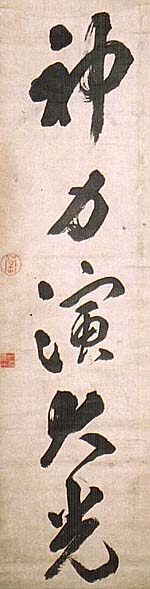 神力演大光